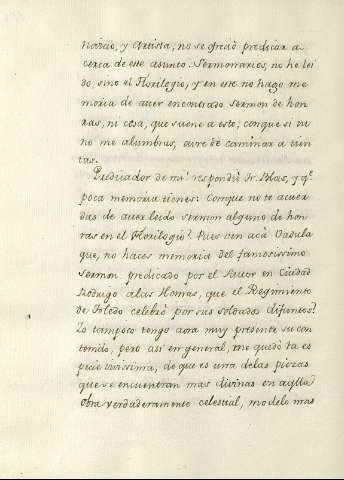 nario, y Artista, no se ofreció predicar a
cerca de este asunto. Sermonarios, no he lei
do, sino el Florilogio, y en este no hago me
moria de aver encontrado sermon de hon
ras, ni cosa, que suene a esto; conque si vm
no me alumbras, avre de caminar a tien
tas.
Predicador de mi respondiò Fr. Blas, y q.
poca memoria tienes! Conque no te acuer
das de aver leido sermon alguno de hon
ras en el Florilogio? Pues ven acà
que, no haces memoria del famosissimo
sermon predicado por el Autor en Ciudad
Rodrigo a las Honras, que el Regimiento
de Toledo celebrò por sus soldados difuntos?
Yo tampoco tengo aora muy presente su con
tenido, pero asi en general, me quedò la es
pecie vivissima, de que es una de las piezas
que se encuentran mas divinas en aqlla
obra verdaderamente celestial, modelo mas